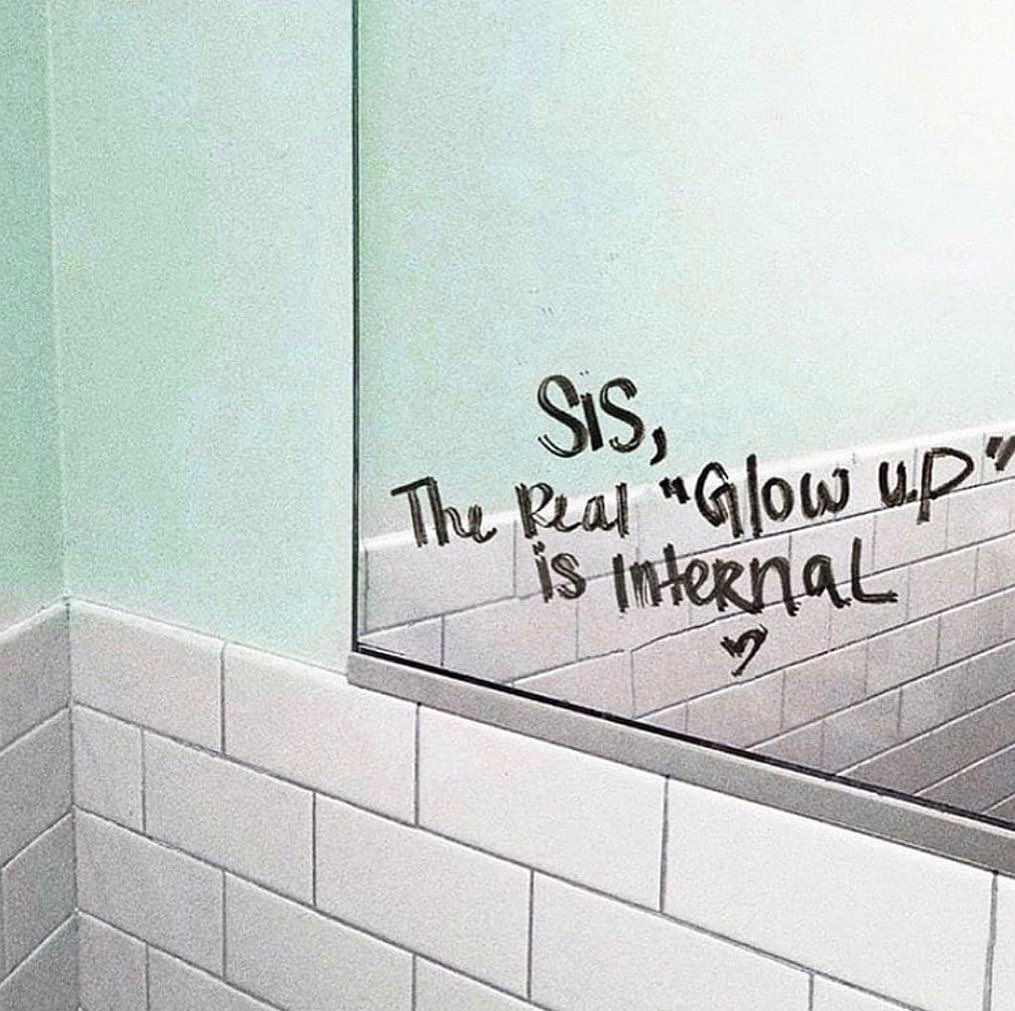 Sis,
The Real "Glow up"
is Internal